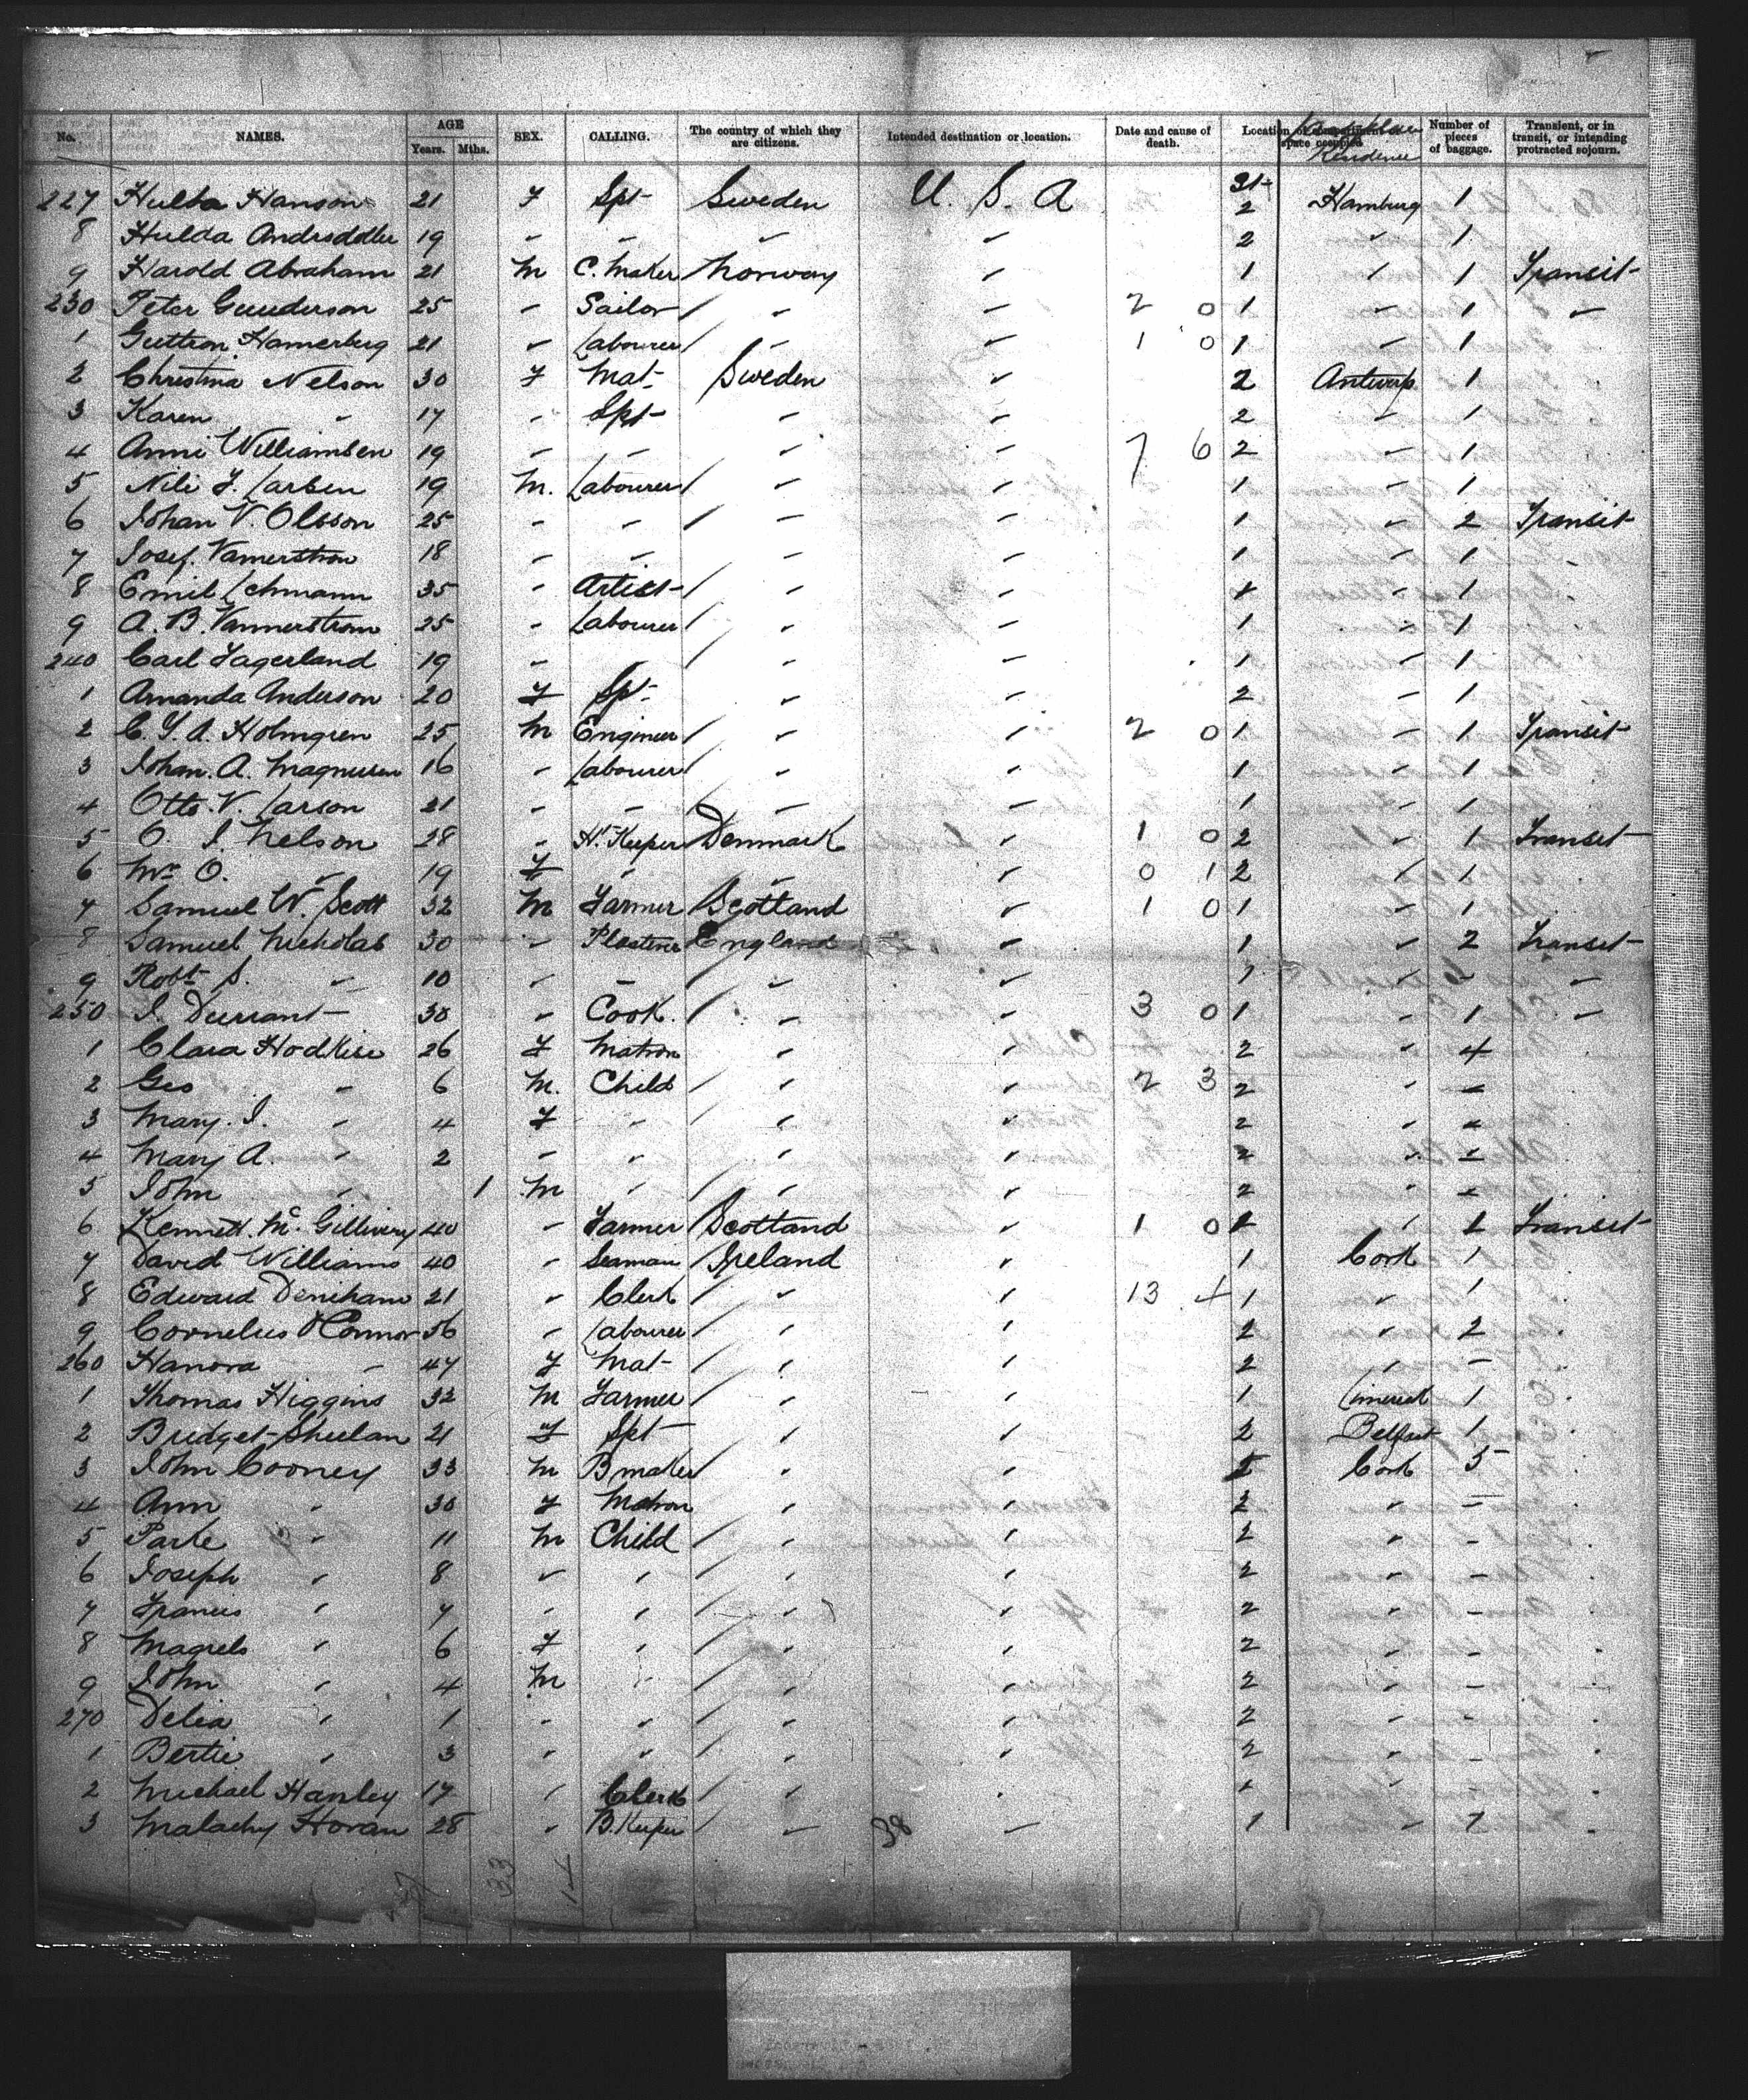 No. NAMES. AGE Years. Mths. SEX. CALLING. The country of which they are citizens. Intended destination or location. Date and cause of death. Location of compartment or space occupied Last place Residence Number of pieces of baggage. Transient, or in transit, or intending protracted sojourn.
227 Hulta Hanson 21 F Spt Sweden U. S. A 2 Hamburg 1
8 Hulda 19 " " " " 2 " 1
9 Harold Abraham 21 M C. Maker Norway " 1 " 1 Transit
230 Peter Gunderson 25 " Sailor " " 2 0 1 " 1 "
1 Guttron Hamerberg 21 " Labourer " " 1 0 1 " 1
2 Christina Nelson 30 F Mat Sweden " 2 Antwerp 1
3 Karen " 17 " Spt " " 2 " 1
4 Anni Williamsen 19 " " " " 7 6 2 " 1
5 Nili J. Larsen 19 M. Labourer " " 1 " 1
6 Johan V. Olsson 25 " " " " 1 " 2 Transit
7 Josef. Vamerstrom 18 " " " " 1 " 1
8 Emil Lehmann 35 " Artist " " 1 " 1
9 A. B. Vannerstrom 25 " Labourer " " 1 " 1
240 Carl Fagerland 19 " " " 1 " 1
1 Amanda Anderson 20 F Spt " " 2 " 1
2 C. Y. A. Holmgren 25 M Engineer " " 2 0 1 " 1 Transit
3 Johan. A. Magnusen 16 " Labourer " " 1 " 1
4 Otto. V. Larson 21 " " " " 1 " 1
5 O. J. Nelson 28 " H. Keeper Denmark " 1 0 2 " 1 Transit
6 Mrs O. " 19 F " " " 0 1 2 " 1
7 Samuel W. Scott 32 M Farmer Scotland " 1 0 1 " 1
8 Samuel Nicholas 30 " Plasterer England " 1 " 2 Transit
9 Robt S. " 10 " " " " 1 " " "
250 J. Durrant 38 " Cook. " " 3 0 1 " 1 "
1 Clara Hodkise 26 F Matron " " 2 " 4
2 Geo " 6 M. Child " " 2 3 2 " "
3 Mary. J. " 4 F " " " 2 " "
4 Mary A. " 2 " " " " 2 " "
5 John " 1 M " " " 2 " "
6 Kennett. Mc. Gillivery 40 " Farmer Scotland " 1 0 " Transit
7 David Williams 40 " Seaman Ireland " 1 Cork 1
8 Edward Deniham 21 " Clerk " " 13 4 1 " 1
9 Cornelius O'Connor 56 " Labourer " " 2 " 2
260 Hanora " 47 F Mat " " 2 " "
1 Thomas Higgins 32 M Farmer " " 1 Limerick 1
2 Bridget Sheelan 21 F Spt " " 2 Belfast 1
3 John Cooney 33 M B maker " " Cork 5
4 Ann " 30 F Matron " " 2 " "
5 Parke " 11 M Child " " 2 " "
6 Joseph " 8 " " " " 2 " "
7 Francis " 7 " " " " 2 " "
8 Magrels " 6 F " " " 2 " "
9 John " 4 M " " " 2 " "
270 Delia " 1 " " " " 2 " "
1 Bertie " 3 " " " " 2 " "
2 Michael Hanley 17 " Clerk " " " "
3 Malachy Horan 28 " B. Keeper " " 1 " 1
38
33